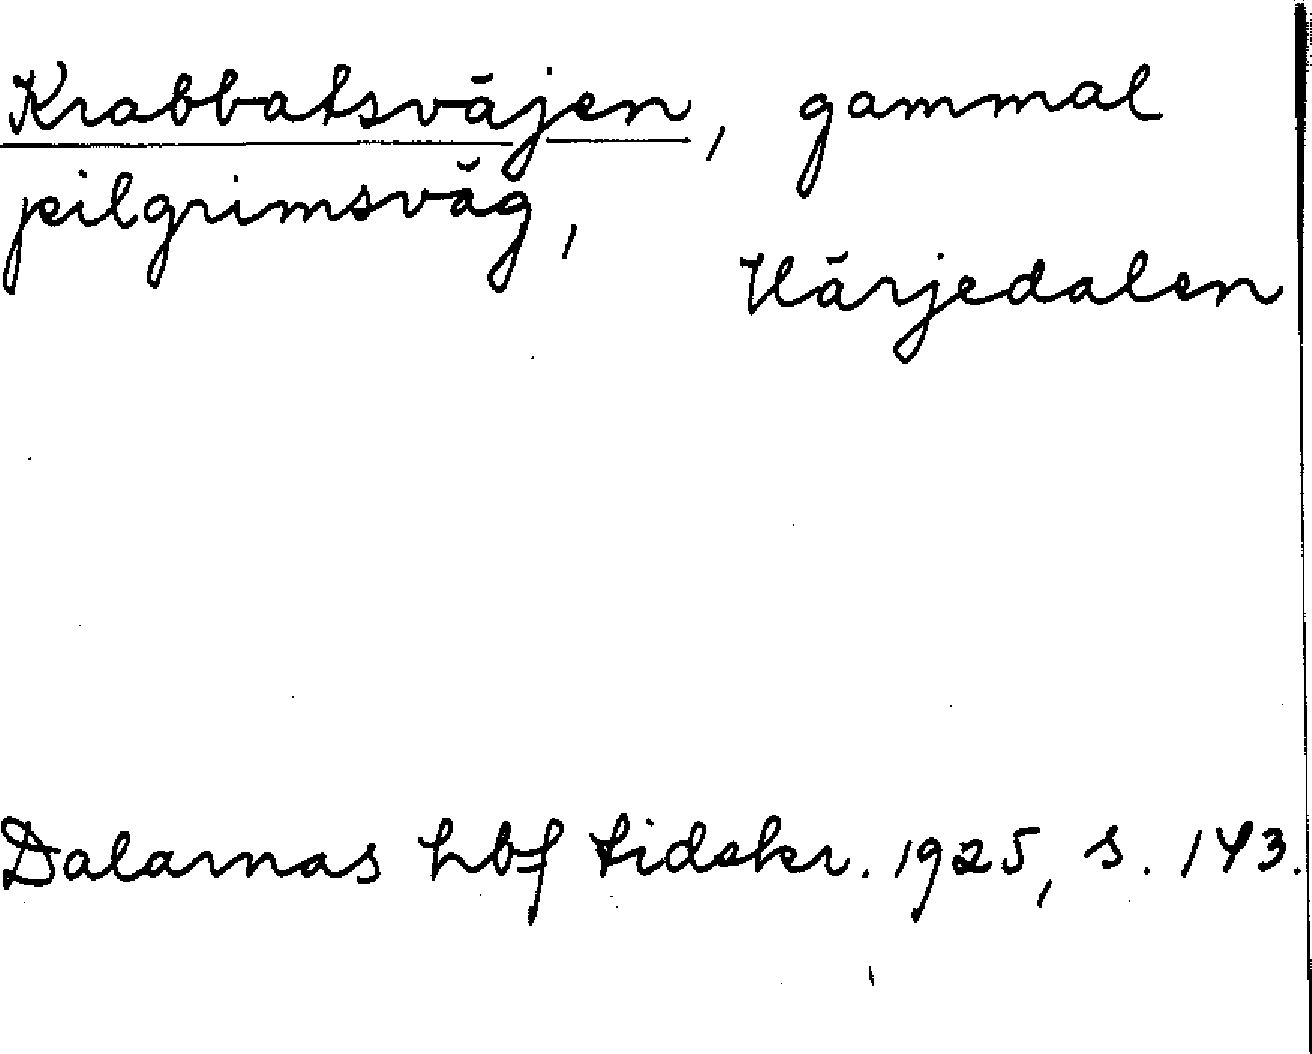 Krabbatsväjen, gammal
pilgrimsväg,
Härjedalen
Dalarnas hbf tidskr. 1925, s. 143.